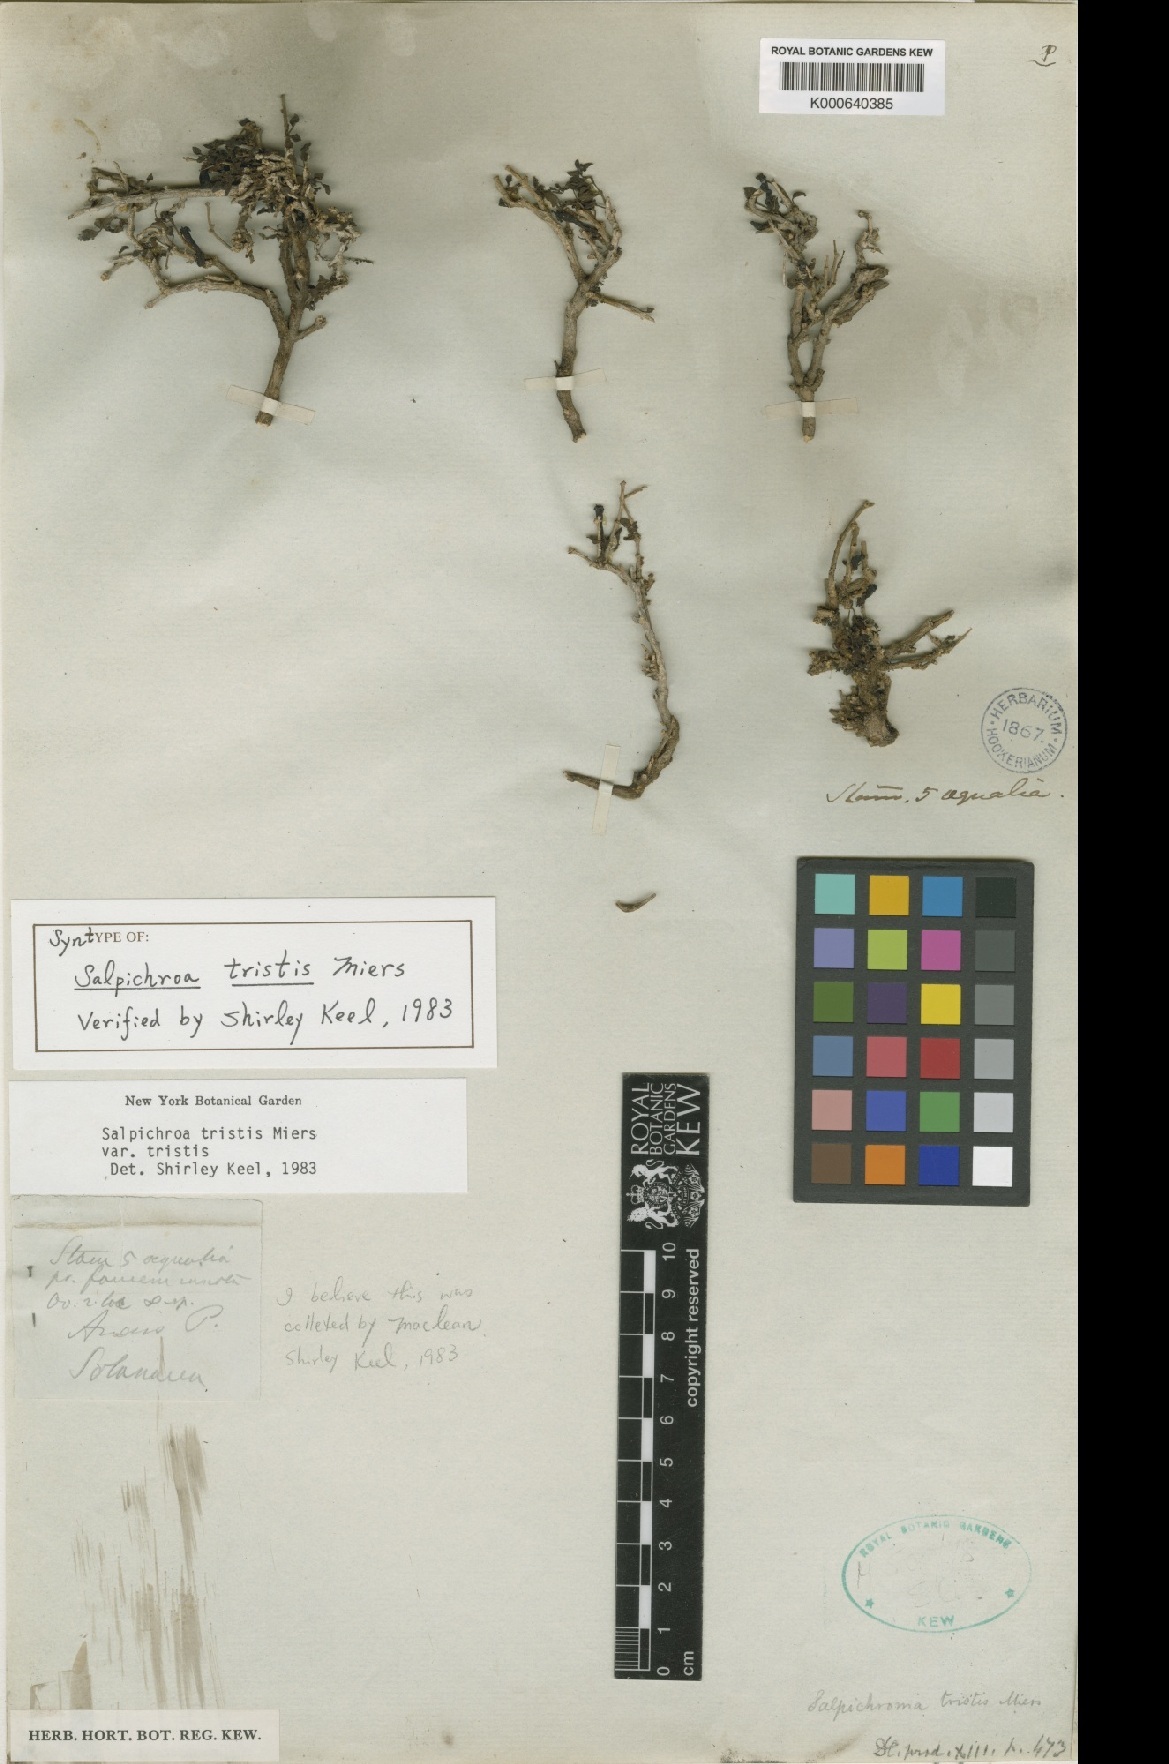 ROYAL BOTANIC GARDENS KEW
K000640385
P
HERBARIUM
1867.
HOOKERIANUM
Stam. 5 aequalia.
SyntYPE OF:
Salpichroa tristis Miers
Verified by Shirley Keel, 1983
New York Botanical Garden
Salpichroa tristis Miers
var. tristis
Det. Shirley Keel, 1983
Stam 5 aequalia
faucem
Ov. 2
P.
I believe this was
colleted by Maclean.
Shirley Keel, 1983
ROYAL
BOTANIC
GARDENS
KEW
copyright reserved
0 1 2 3 4 5 6 7 8 9 10
cm
ROYAL BOTANIC GARDENS
KEW
Salpichroma tristis Miers
DC. prod. XIII. p. 473
HERB. HORT. BOT. REG. KEW.